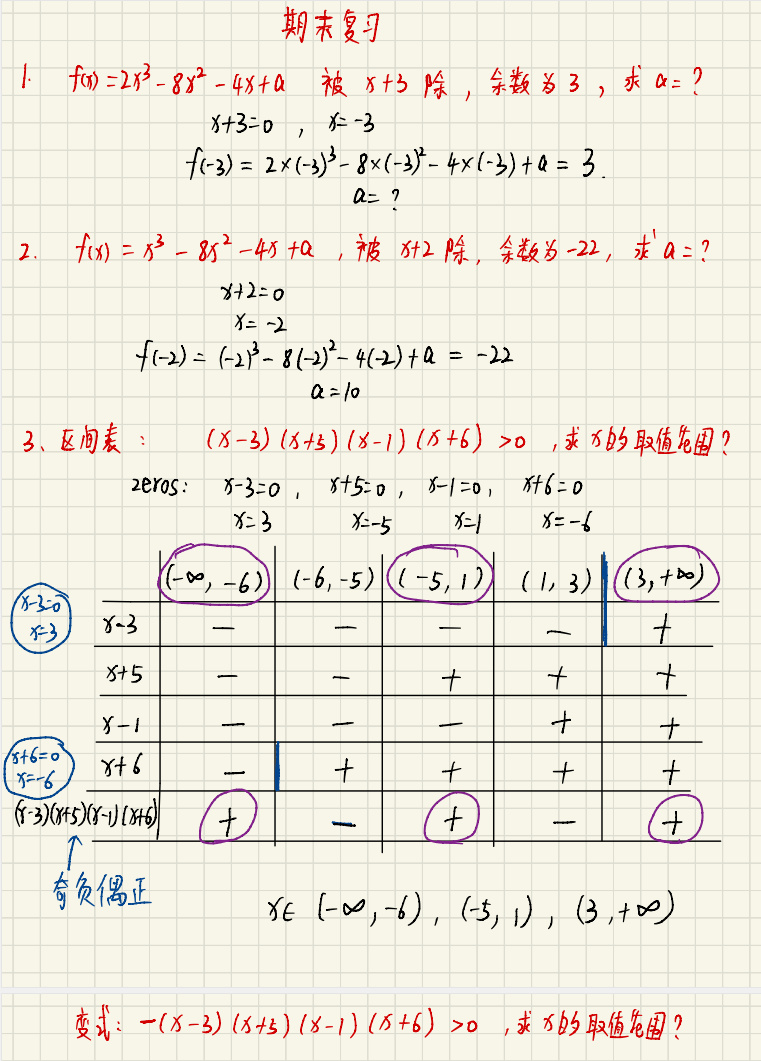 期末复习
1. f(x)=2x³-8x²-4x+a 被 x+3 除，余数为 3，求 a=？
x+3=0，x=-3
f(-3)=2×(-3)³-8×(-3)²-4×(-3)+a=3.
a=？
2. f(x)=x³-8x²-4x+a，被 x+2 除，余数为-22，求 a=？
x+2=0
x=-2
f(-2)=(-2)³-8(-2)²-4(-2)+a=-22
a=10
3、区间表：(x-3)(x+5)(x-1)(x+6)>0，求 x的取值范围？
zeros: x-3=0，x+5=0，x-1=0，x+6=0
x=3 x=-5 x=1 x=-6
(-∞,-6) (-6,-5) (-5,1) (1,3) (3,+∞)
x-3=0
x=3
x-3 - - - - +
x+5 - - + + +
x-1 - - - + +
x+6=0
x=-6
x+6 - + + + +
(x-3)(x+5)(x-1)(x+6) + - + - +
奇负偶正
x∈(-∞,-6)，(-5,1)，(3,+∞)
变式：-(x-3)(x+5)(x-1)(x+6)>0，求 x的取值范围？